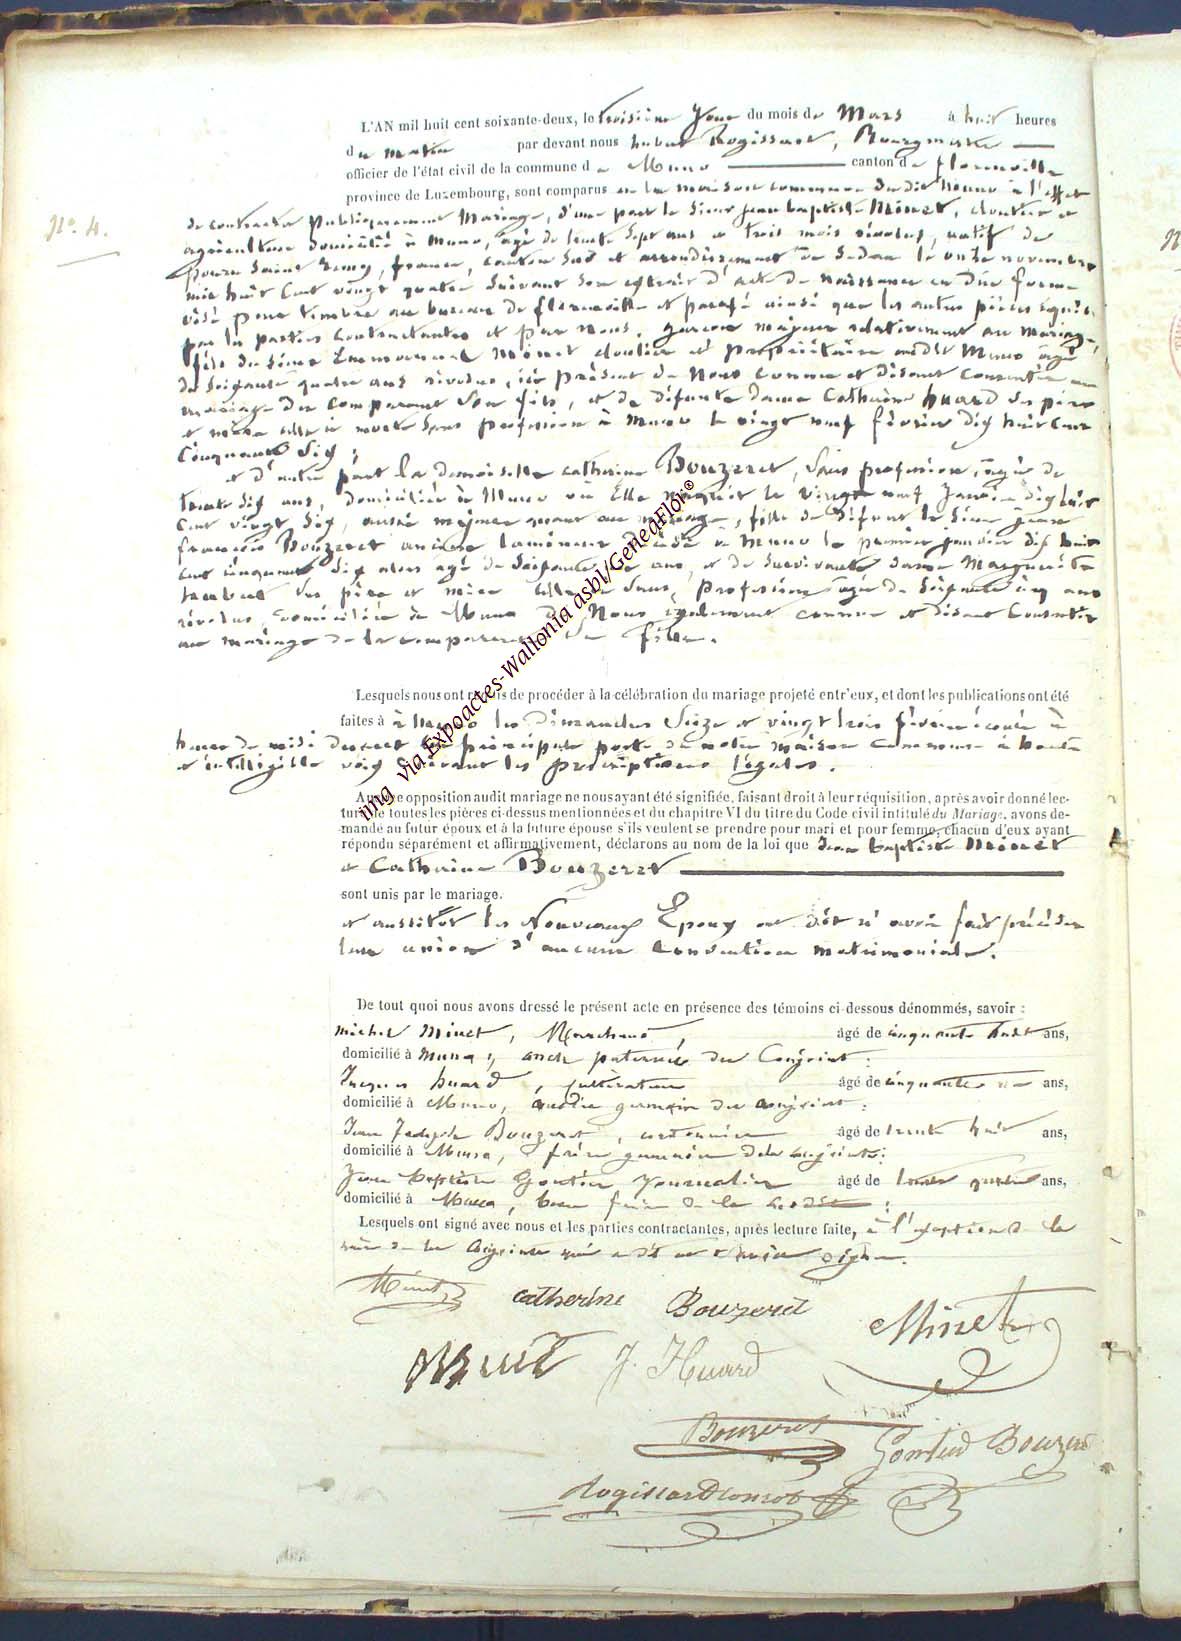 N°. 4.
L'AN mil huit cent soixante-deux, le troisième Jour du mois de Mars à huit heures
du matin par devant nous hubert Rogissart, Bourgmestre
officier de l'état civil de la commune de Muno canton de florenville
province de Luxembourg, sont comparus en la maison commune dudit Muno à l'effet
de contracter publiquement Mariage, d'une part le Sieur jean baptiste Minet, cloutier et
agriculteur domicilié à Muno, agé de trente Sept ans et trois mois révolus, natif de
pouru Saint Remy, france, canton Sud et arrondissement de Sedan le onze novembre
mil huit Cent vingt quatre Suivant Son extrait d'acte de naissance en due forme
visé pour timbre au bureau de florenville et parafé ainsi que les autres pièces
par les parties Contractantes et par Nous, garçon majeur relativement au Mariage,
fils du Sieur Minet cloutier et propriétaire audit Muno agé
de Soixante quatre ans révolus, ici présent de Nous Connu et disant Consentir au
mariage du Comparant Son fils, et de défunte dame Catherine huard Ses père
et mère elle morte Sans profession à Muno le vingt neuf février dix huit Cent
Cinquante Six ;
et d'autre part la demoiselle Catherine Bouzeret, Sans profession, agée de
trente Six ans, domiciliée à Muno où Elle naquit le vingt neuf Janvier dix huit
Cent vingt Six, aussi majeure quant au mariage, fille de défunt le Sieur jean
françois Bouzeret ancien décédé à Muno le premier janvier dix huit
Cent cinquante Six alors agé de Soixante ans, et de Survivante dame Marguerite
Ses père et mère elle Sans profession agée de Soixante ans
révolus, domiciliée à Muno de Nous également connue et disant Consentir
au mariage de la comparante Sa fille.
Lesquels nous ont requis de procéder à la célébration du mariage projeté entr'eux, et dont les publications ont été
faites à à Muno les Dimanches Seize et vingt trois février écoulé à
heure de midi devant la principale porte de notre Maison Commune à haute
et intelligible voix Suivant les prescriptions légales.
Aucune opposition audit mariage ne nous ayant été signifiée, faisant droit à leur réquisition, après avoir donné lec-
ture de toutes les pièces ci-dessus mentionnées et du chapitre VI du titre du Code civil intitulé du Mariage, avons de-
mandé au futur époux et à la future épouse s'ils veulent se prendre pour mari et pour femme, chacun d'eux ayant
répondu séparément et affirmativement, déclarons au nom de la loi que Jean baptiste Minet
et Catherine Bouzeret
sont unis par le mariage.
et aussitôt les Nouveaux Epoux ont dit n'avoir fait précéder
leur union d'aucune Convention matrimoniale.
De tout quoi nous avons dressé le présent acte en présence des témoins ci-dessous dénommés, savoir :
michel Minet, Marchand, âgé de cinquante huit ans,
domicilié à Muno, oncle paternel du Conjoint ;
Jacques huard, cultivateur âgé de cinquante ans,
domicilié à Muno, germain du conjoint ;
Jean Bouzeret, cordonnier âgé de trente huit ans,
domicilié à Muno, frère germain de la conjointe ;
Jean Baptiste Gontier Journalier âgé de ans,
domicilié à Muno, beau frère de la ;
Lesquels ont signé avec nous et les parties contractantes, après lecture faite, à l'exception de la
mère de la Conjointe qui a dit ne Savoir signer.
Minet catherine Bouzeret Minet
Minet J. Huard
Bouzeret Gontier Bouzeret
Rogissart
img via Expoactes-Wallonia asbl/GeneaFlor©